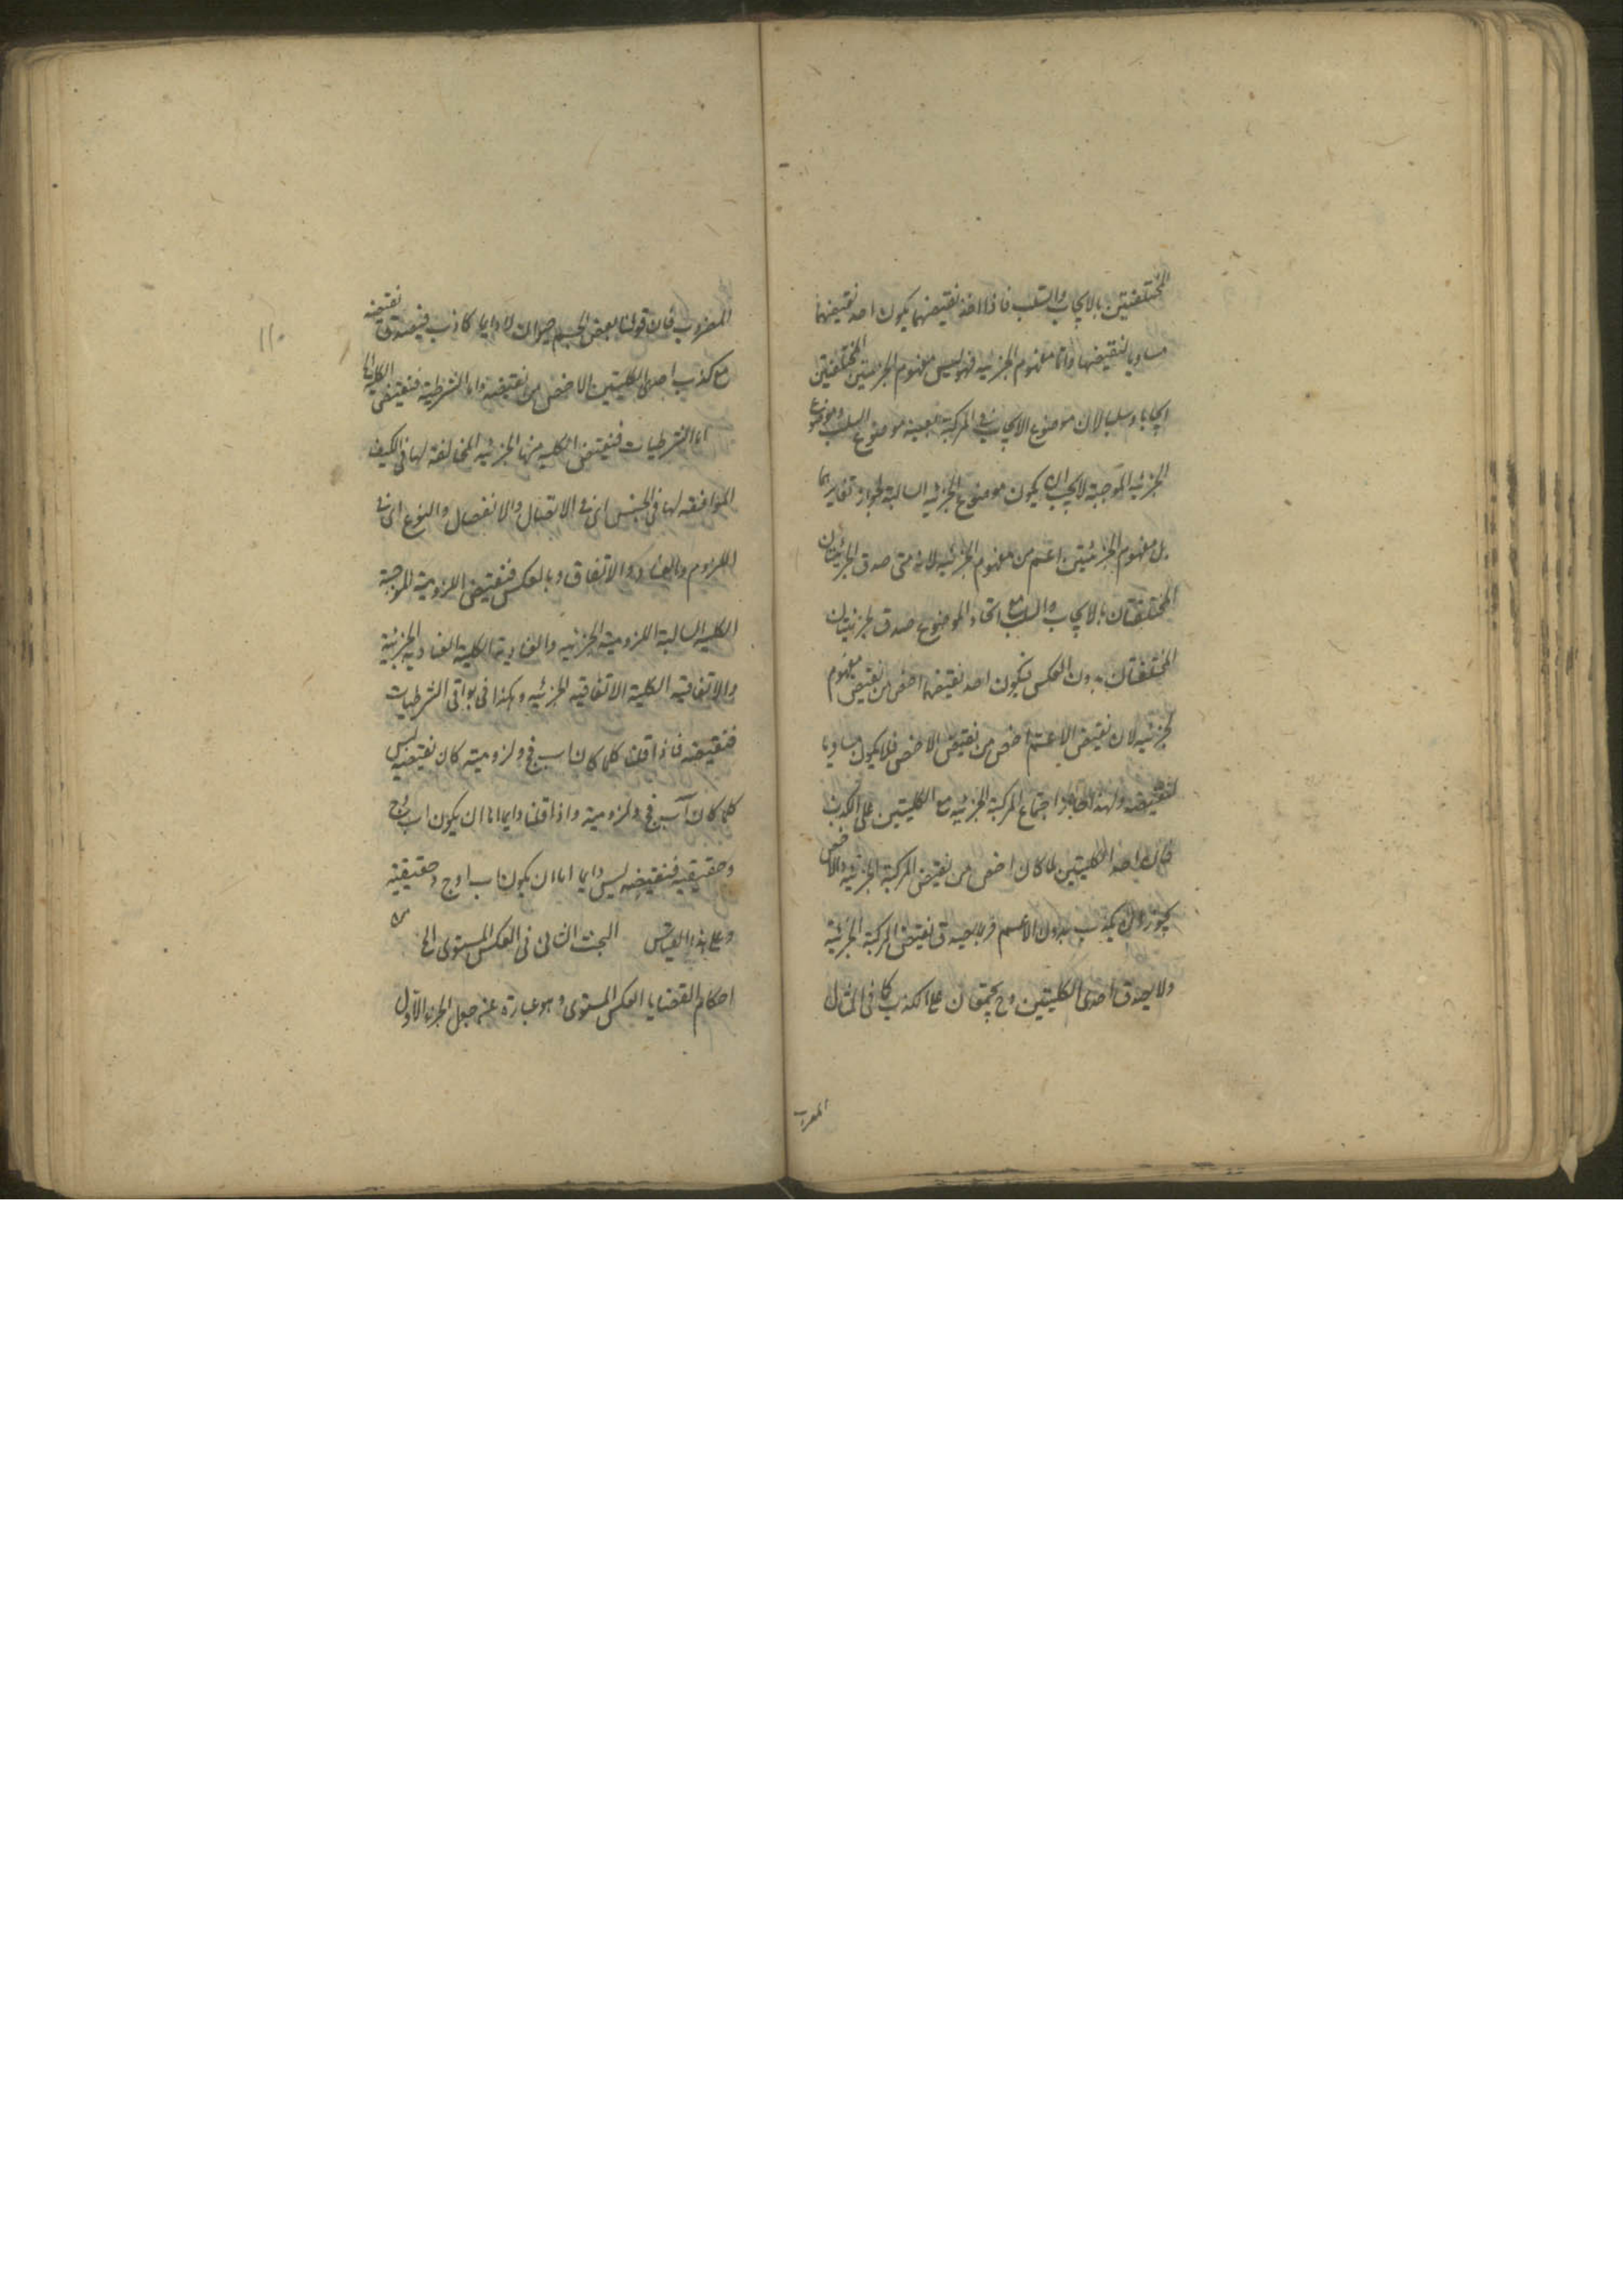 المختلفتين بالايجاب والسلب فاذا اخذ نقيضهما يكون احد نقيضيهما
مساويا لنقيضها واما مفهوم الجزئية فهو ليس مفهوم الجزئيتين المختلفتين
ايجابا وسلبا لان موضوع الايجاب في المركبة بعينه موضوع السلب وموضوع
الجزئية الموجبة لا يجب ان يكون موضوع الجزئية السالبة لجواز تغايرهما
بل مفهوم الجزئيتين اعم من مفهوم الجزئية لانه متى صدق الجزئيتان
المختلفتان بالايجاب والسلب مع اتحاد الموضوع صدق الجزئيتان
المختلفتان بدون العكس فيكون احد نقيضيهما اخص من نقيض مفهوم
الجزئية لان نقيض الاعم اخص من نقيض الاخص فلا يكون مساويا
لنقيضه ولهذا جاز اجتماع المركبة الجزئية مع الكليتين على الكذب
فان احد الكليتين لما كان اخص من نقيض المركبة الجزئية والاخص
يجوز ان يكذب بدون الاعم فربما يصدق نقيض المركبة الجزئية
ولا يصدق احدى الكليتين وح يجتمعان على الكذب كما في المثال
المضروب
١١٠
المضروب فان قولنا بعض الجسم حيوان لا دايما كاذب فيصدق نقيضه
مع كذب احدى الكليتين الاخص من نقيضه واما الشرطية فنقيض الكلية الخ
اما الشرطيات فنقيض الكلية منها الجزئية المخالفة لها في الكيف
الموافقة لها في الجنس اى في الاتصال والانفصال والنوع اى في
اللزوم والعناد والاتفاق وبالعكس فنقيض اللزومية الموجبة
الكلية السالبة اللزومية الجزئية والعنادية الكلية العنادية الجزئية
والاتفاقية الكلية الاتفاقية الجزئية وهكذا في بواقى الشرطيات
فنقيضه فاذا قلنا كلما كان اب فج د لزومية كان نقيضه ليس
كلما كان اب فج د لزومية واذا قلنا دايما اما ان يكون اب او ج
د حقيقية فنقيضه ليس دايما اما ان يكون اب او ج د حقيقية
وعلى هذا القياس البحث الثانى في العكس المستوى الخ من
احكام القضايا العكس المستوى وهو عبارة عن جعل الجزء الاول